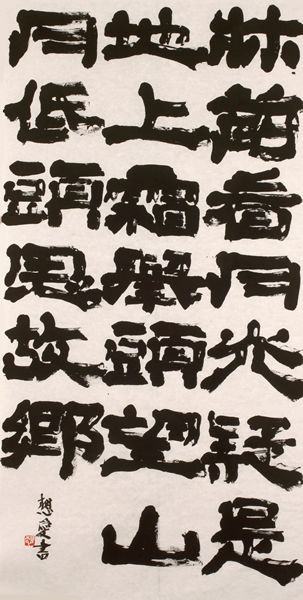 牀前看月光疑是
地上霜舉頭望山
月低頭思故鄉
書